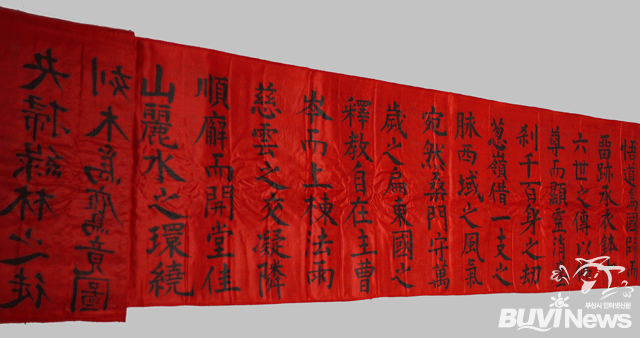 悟道爲國開
畱跡承衣鉢
六世之傳以
尊而顯靈消
刹千百身之劫
葱嶺借一支之
脉西域之風氣
宛然桑門守萬
歲之爲東國之
釋教自在主曹
岺而上棟法雨
慈雲之交凝隣
順廨而開堂佳
山麗水之環繞
刻木爲鷹竟圖
央掃綠林之徒
부산시 인터넷신문
BUVI News